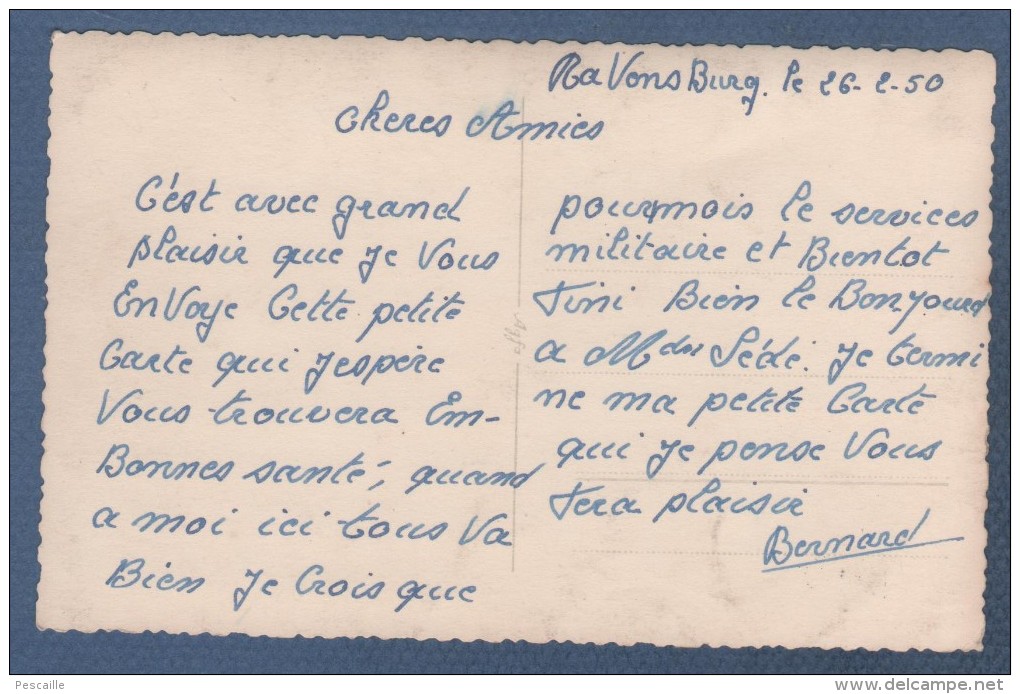 RaVensBurg. le 26-2-50
cheres Amies
C'est avec grand
plaisir que je Vous
EnVoye Cette petite
Carte qui j'espère
Vous trouvera Em-
Bonnes santé, quand
a moi ici tous Va
Bien Je Crois que
pourmois le services
militaire et Bientot
Fini Bien le Bonjourd
a Séde. Je termi
ne ma petite Carte
qui je pense Vous
Fera plaisir
Bernard
Pescaille
delcampe.net